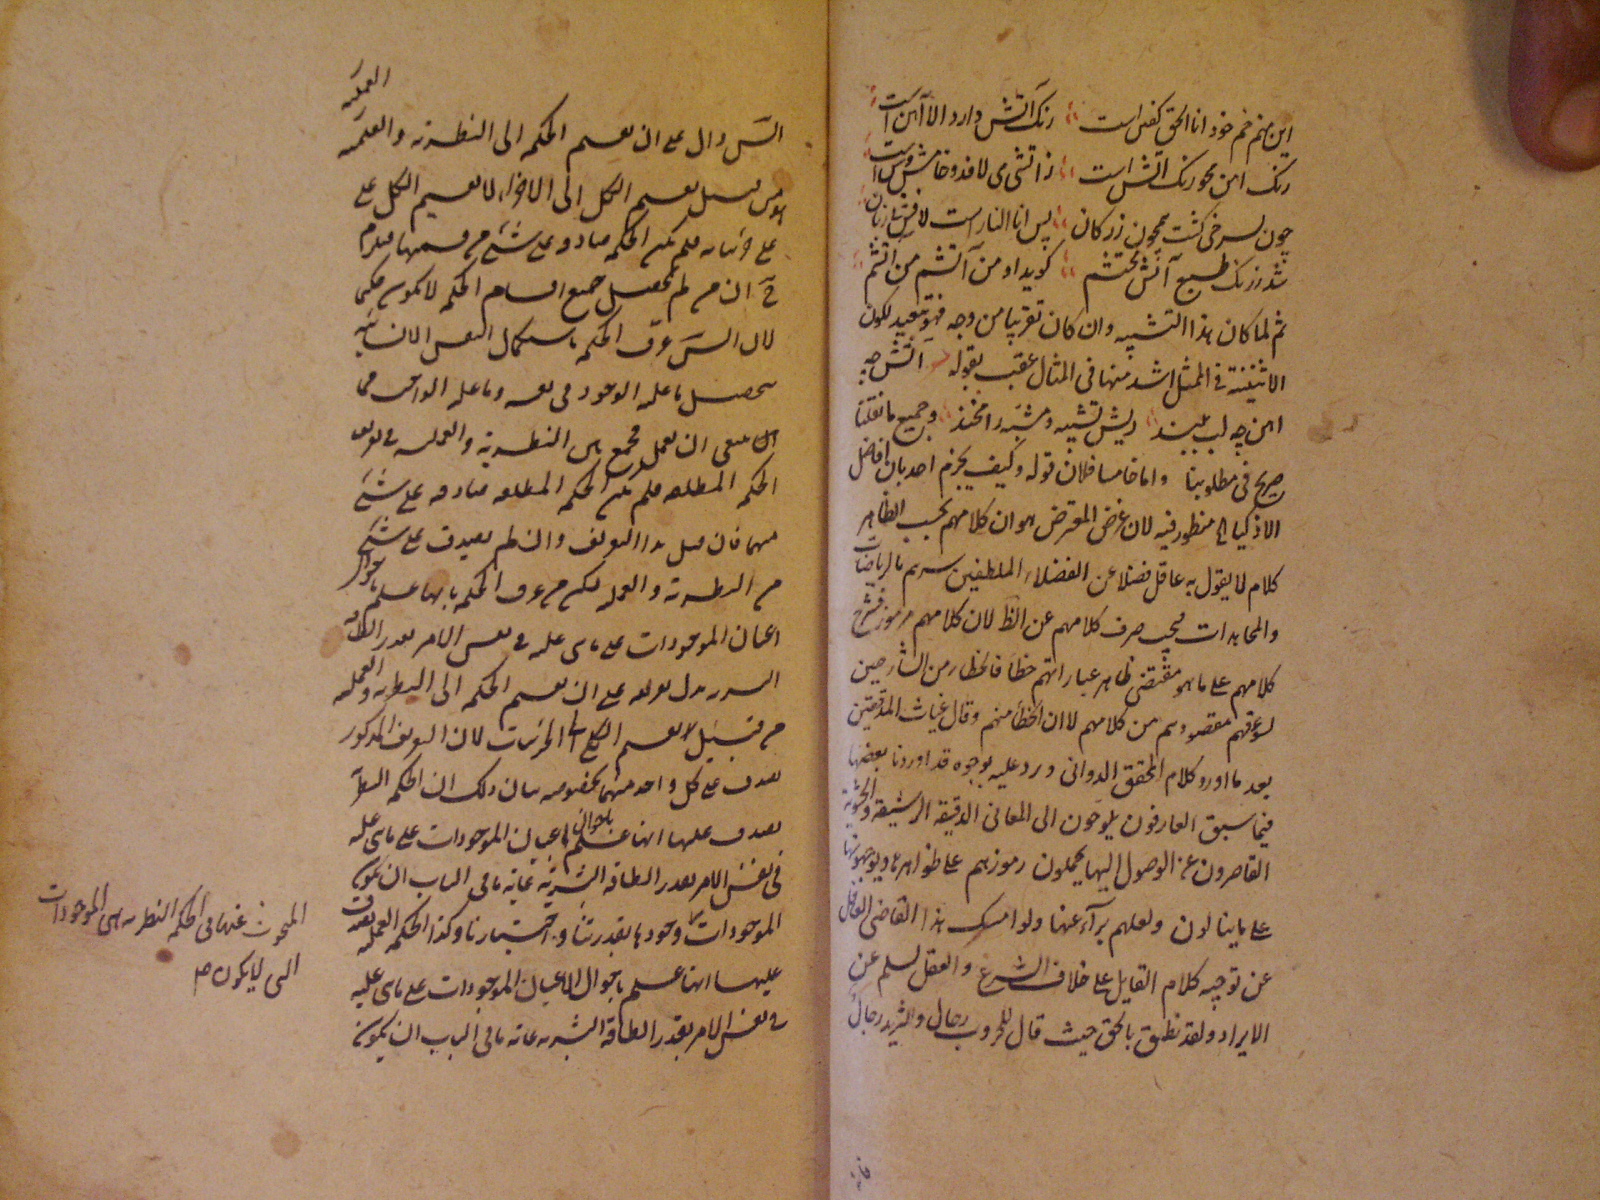 این منم خم خود انا الحق گفتن است رنک آتش دارد الا آهن است
رنک اهن محو رنک اتش است ز اتشی می لافد و خامش وش است
چون بسرخی کشت همچون زر کان پس انا النار است لافش بی زبان
شد ز رنک و طبع آتش محتشم کوید او من آتشم من آتشم
ثم لما کان هذا التشبیه وان کان تقریبا من وجه فهو تبعید لکون
الاثنینیة فی المثل اشد منها فی المثال عقب بقوله آتش چه
اهن چه لب ببند ریش تشبیه و مشبه را مخند و جمیع ما نقلنا
صریح فی مطلوبنا واما خامسا فلان قوله وکیف یجزم احد بان افاضل
الاذکیا الخ منظور فیه لان غرض المعترض هو ان کلامهم بحسب الظاهر
کلام لا یقول به عاقل فضلا عن الفضلاء الملطفین سرهم بالریاضات
والمجاهدات فیجب صرف کلامهم عن الظ لان کلامهم مرموز فشرح
کلامهم علی ما هو مقتضی ظاهر عباراتهم خطأ فالخطا من الشارحین
لسوء فهم مقصودهم من کلامهم لا ان الخطأ منهم وقال غیاث المدققین
بعد ما اورد کلام المحقق الدوانی ورد علیه بوجوه قد اوردنا بعضها
فیما سبق العارفون یلوحون الی المعانی الدقیقة الرشیقة والحشویة
القاصرون عن الوصول الیها یحملون رموزهم علی ظواهرها ویوجهونها
علی ما ینالون ولعلهم برآء عنها ولو امسک هذا القاضی الغافل
عن توجیه کلام القایل علی خلاف الشرع والعقل لسلم عن
الایراد ولقد نطق بالحق حیث قال للحروب رجال وللثرید رجال
العملیة
الش دال علی ان تقسیم الحکمة الی النظریة والعملیة
لیس من قبیل تقسیم الکل الی الاجزاء لا تقسیم الکلی علی
علی جزئیاته فلم تکن الحکمة صادقة علی شیء من قسمیها فیلزم
ح ان من لم یحصل جمیع اقسام الحکمة لا یکون حکیما
لان الش عرف الحکمة باستکمال النفس الانسانیة
بتحصیل ما علیه الوجود فی نفسه وما علیه الواجب مما
ینبغی ان یعمل فجمع بین النظریة والعملیة فی تعریف
الحکمة المطلقة فلم تکن الحکمة المطلقة صادقة علی شیء
منهما فان قیل هذا التعریف وان لم یصدق علی شیء
من النظریة والعملیة لکن من عرف الحکمة بانها علم باحوال
اعیان الموجودات علی ما هی علیه فی نفس الامر بقدر الطاقة
البشریة یدل تعریفه علی ان تقسیم الحکمة الی النظریة والعملیة
من قبیل تقسیم الکلی الی الجزئیات لان التعریف المذکور
یصدق علی کل واحد منهما بخصوصه بیان ذلک ان الحکمة النظریة
یصدق علیها انها علم باحوال اعیان الموجودات علی ما هی علیه
فی نفس الامر بقدر الطاقة البشریة غایة ما فی الباب ان یکون
الموجودات وجودها بقدرتنا واختیارنا وکذا الحکمة العملیة یصدق
علیها انها علم باحوال الاعیان الموجودات علی ما هی علیه
فی نفس الامر بقدر الطاقة البشریة غایة ما فی الباب ان یکون
المبحوث عنها فی الحکمة النظریة هی الموجودات
التی لا یکون صح